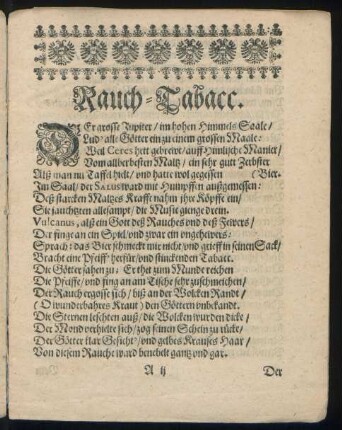 Rauch-Tabacc.
DEr grosse Jupiter / im hohen Himmels Saale /
Lud alle Götter ein zu einem grossen Maale:
Weil Ceres hett gebrewt / auff Himlische Manier /
Vom allerbesten Maltz / ein sehr gutt Zerbster
Alß man nu Taffel hielt / und hatte wol gegessen (Bier.
Im Saal / der Salus ward mit Humpffen außgemessen:
Deß starcken Maltzes Krafft nahm jhre Köpffe ein /
Sie jauchtzten allesampt / die Music gienge drein.
Vulcanus, alß ein Gott deß Rauches und deß Fewers /
Der finge an ein Spiel / und zwar ein ungehewers:
Sprach: das Bier schmeckt mir nicht / und grieff in seinen Sack /
Bracht eine Pfeiff herfür / und stinckenden Taback.
Die Götter sahen zu: Er thet zum Munde reichen
Die Pfeiffe / und fing an am Tische sehr zu schmeichen /
Der Rauch ergosse sich / biß an der Wolcken Randt /
(O wunderbahres Kraut) den Göttern unbekandt.
Die Sternen leschten auß / die Wolcken wurden dicke /
Der Mond verhielte sich / zog seinen Schein zu rücke /
Der Götter klar Gesicht / und gelbes Krauses Haar /
Von diesem Rauche ward benebelt gantz und gar.
A ij Der